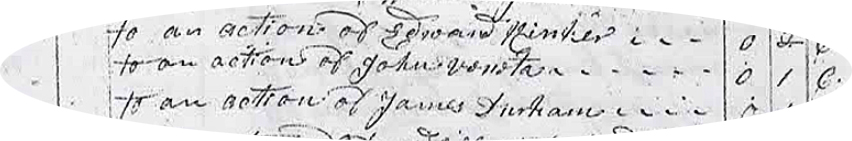 to an action of Edward Kinker - - - 0
to an action of John Veneta - - - - - - 0 1 6.
to an action of James Durham - - - -